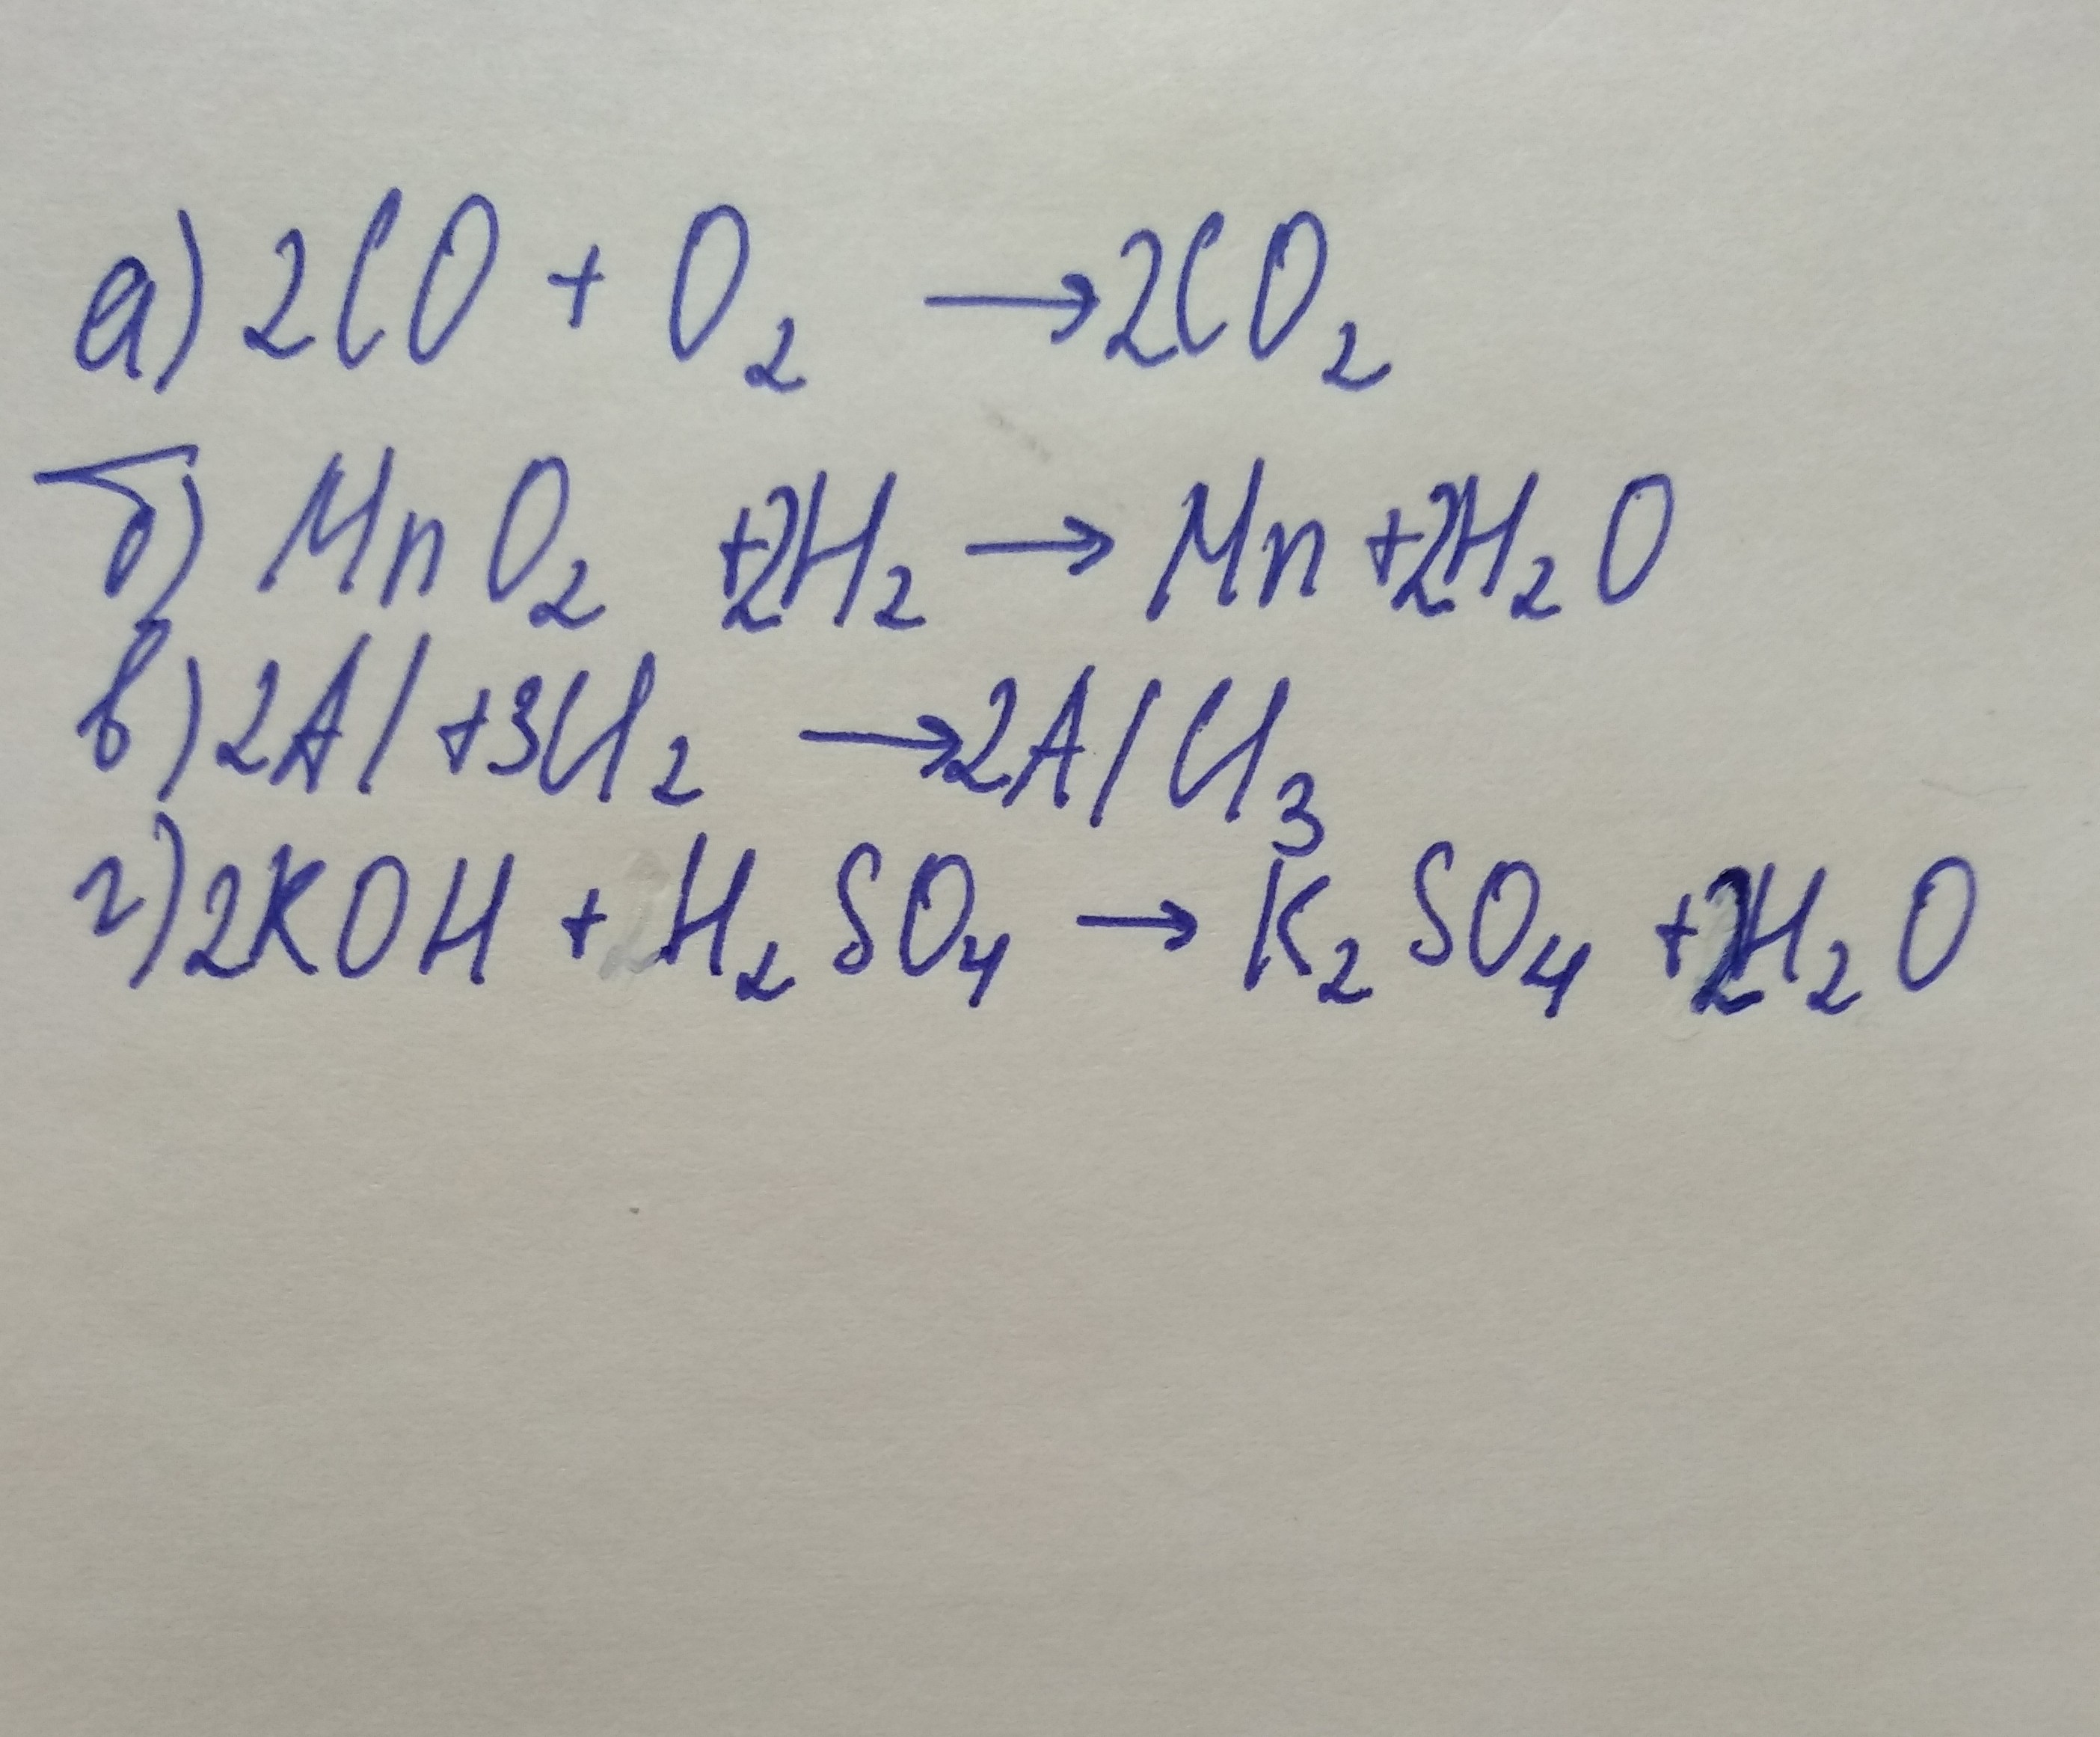 а) 2CO + O₂ → 2CO₂
б) MnO₂ +2H₂ → Mn +2H₂O
в) 2Al +3Cl₂ → 2AlCl₃
г) 2KOH + H₂SO₄ → K₂SO₄ +2H₂O